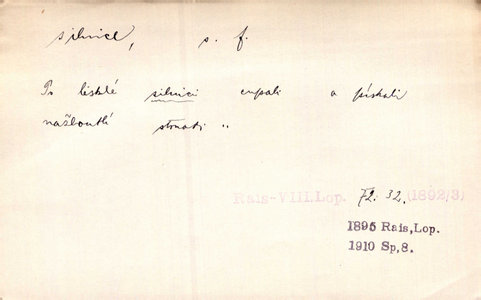 silnice, s. f.
Po lesklé silnici cupali a pískali
nažloutlí strnadi „
Rais-VIII.Lop. 72. 32. (1892/3)
1895 Rais,Lop.
1910 Sp,8.